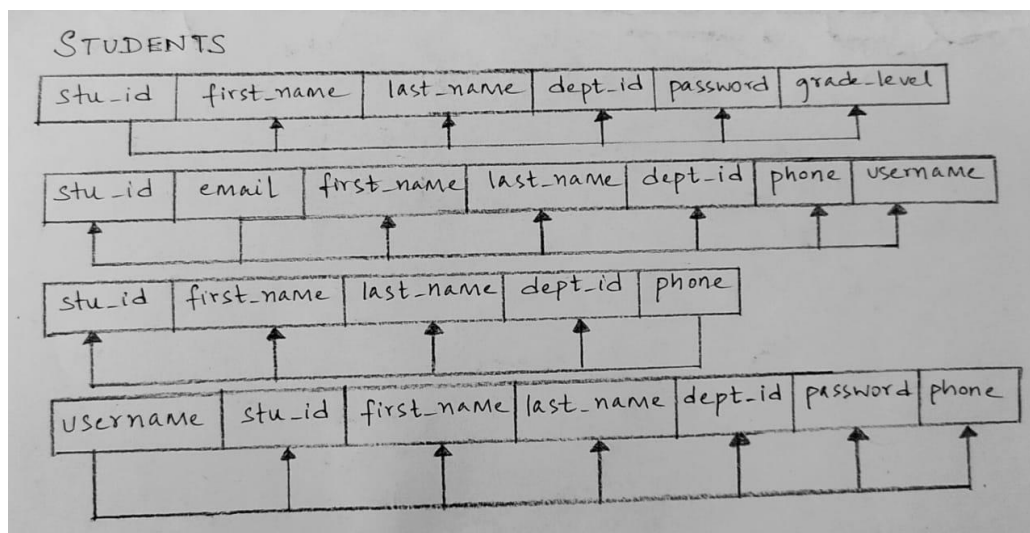 STUDENTS
stu_id first_name last_name dept_id password grade_level
stu_id email first_name last_name dept_id phone username
stu_id first_name last_name dept_id phone
username stu_id first_name last_name dept_id password phone